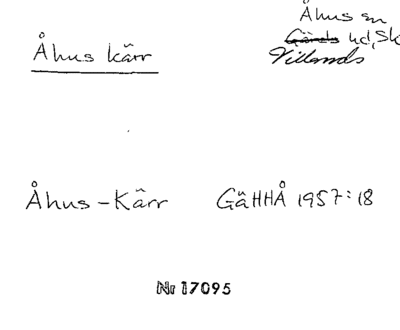 Åhus sn
Åhus kärr
Gärds hd, Sk
Villands
Åhus - Kärr GäHHÅ 1957:18
Nr 17095